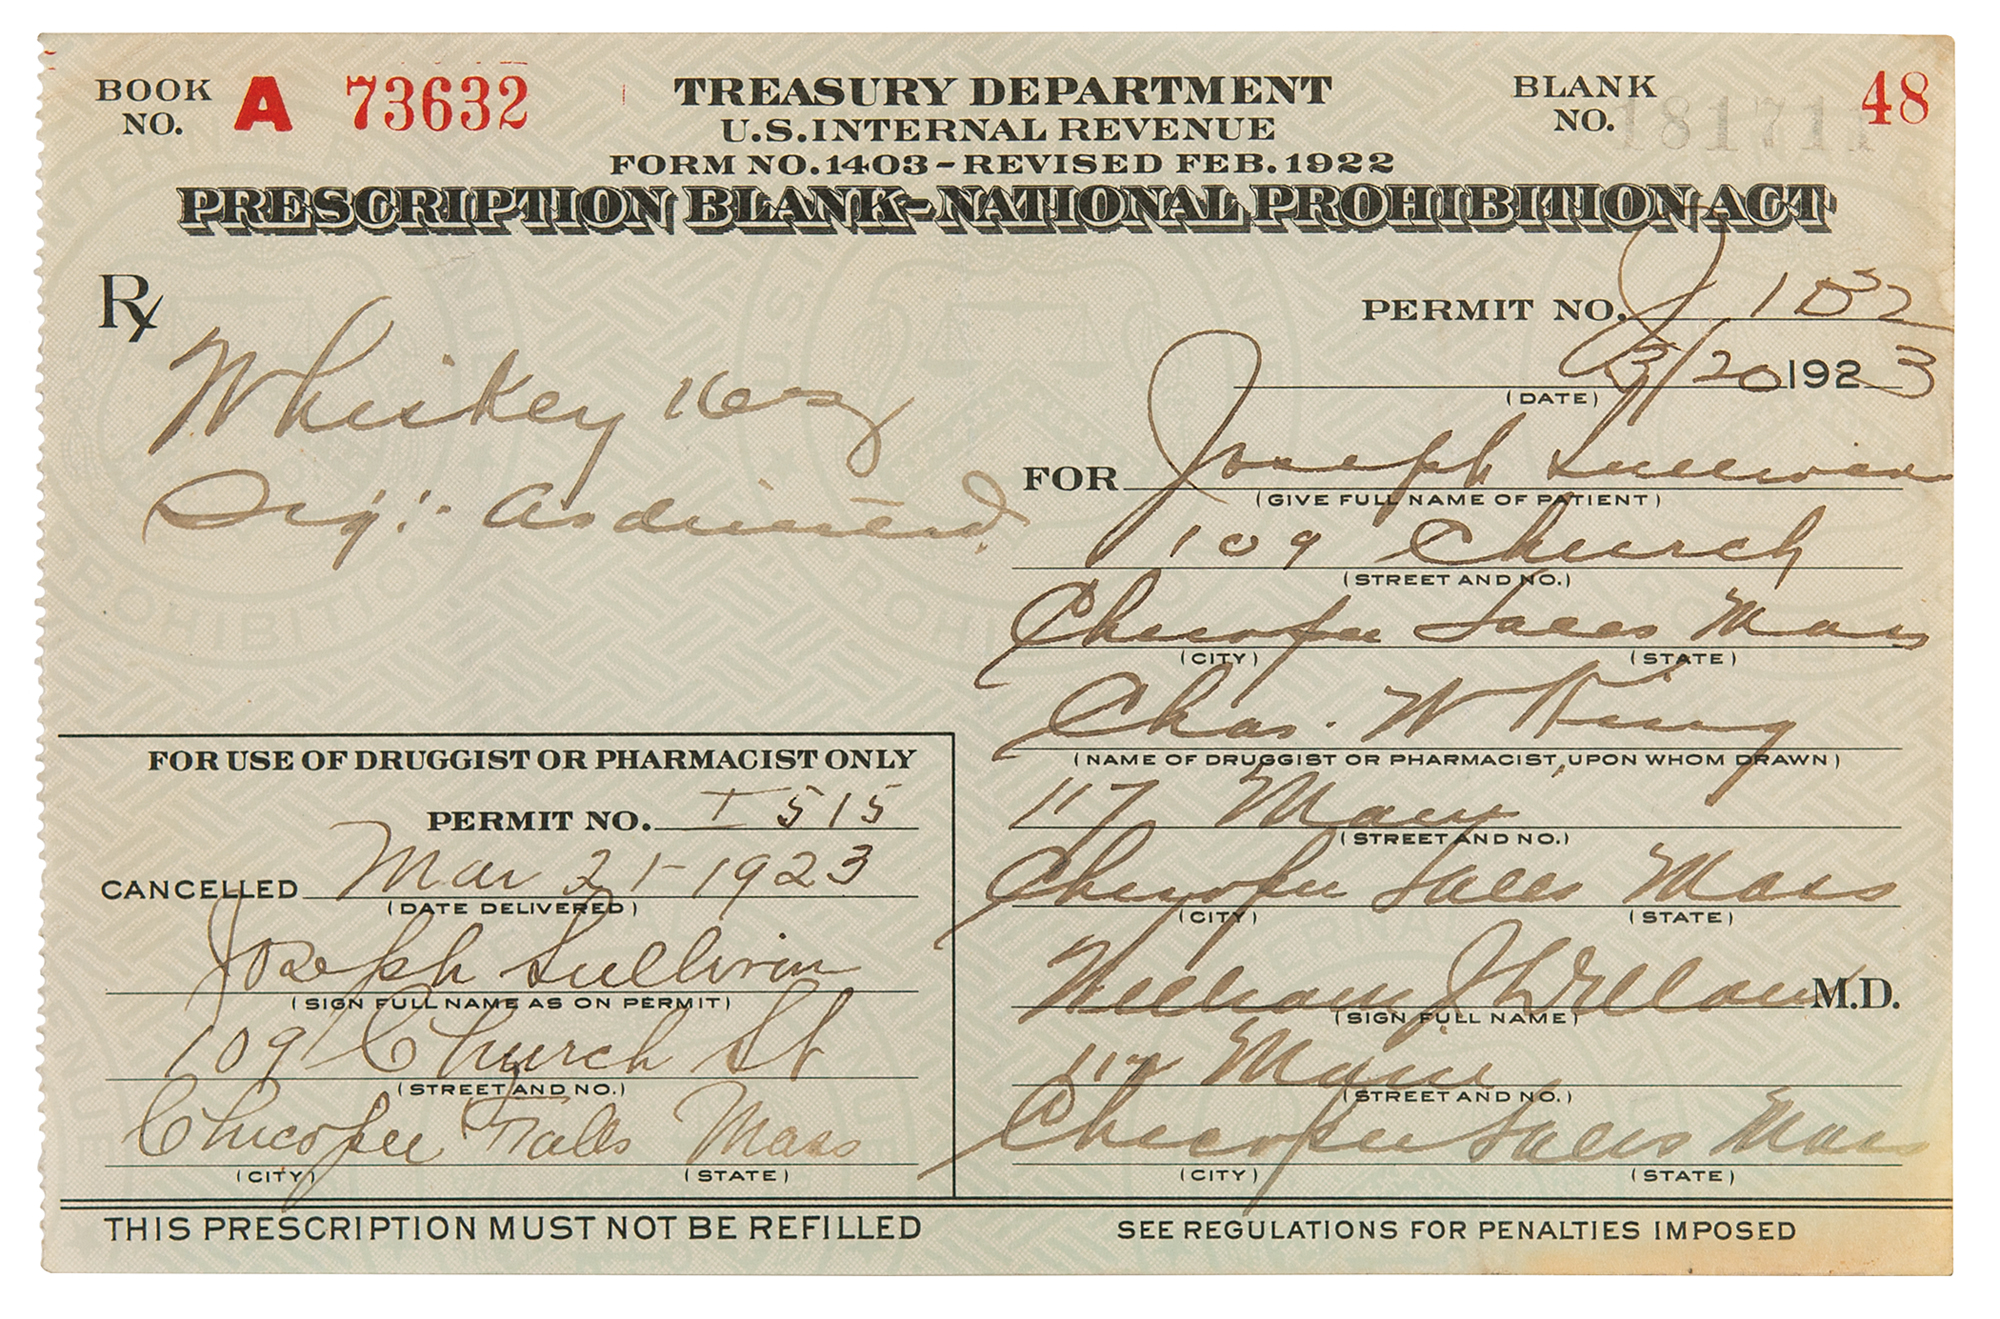 BOOK NO. A 73632
TREASURY DEPARTMENT
U.S. INTERNAL REVENUE
FORM NO. 1403 - REVISED FEB. 1922
BLANK NO. 48
181711
PRESCRIPTION BLANK - NATIONAL PROHIBITION ACT
Rx
Whiskey 16 oz
Sig:- As directed.
PERMIT NO. J 1032
3/20 1923
(DATE)
FOR Joseph Sullivan
(GIVE FULL NAME OF PATIENT)
109 Church
(STREET AND NO.)
Chicopee Falls Mass
(CITY) (STATE)
Chas. W King
(NAME OF DRUGGIST OR PHARMACIST, UPON WHOM DRAWN)
117 Main
(STREET AND NO.)
Chicopee Falls Mass
(CITY) (STATE)
William J M.D.
(SIGN FULL NAME)
117 Main
(STREET AND NO.)
Chicopee Falls Mass
(CITY) (STATE)
FOR USE OF DRUGGIST OR PHARMACIST ONLY
PERMIT NO. I 515
CANCELLED Mar 21-1923
(DATE DELIVERED)
Joseph Sullivan
(SIGN FULL NAME AS ON PERMIT)
109 Church St
(STREET AND NO.)
Chicopee Falls Mass
(CITY) (STATE)
THIS PRESCRIPTION MUST NOT BE REFILLED
SEE REGULATIONS FOR PENALTIES IMPOSED